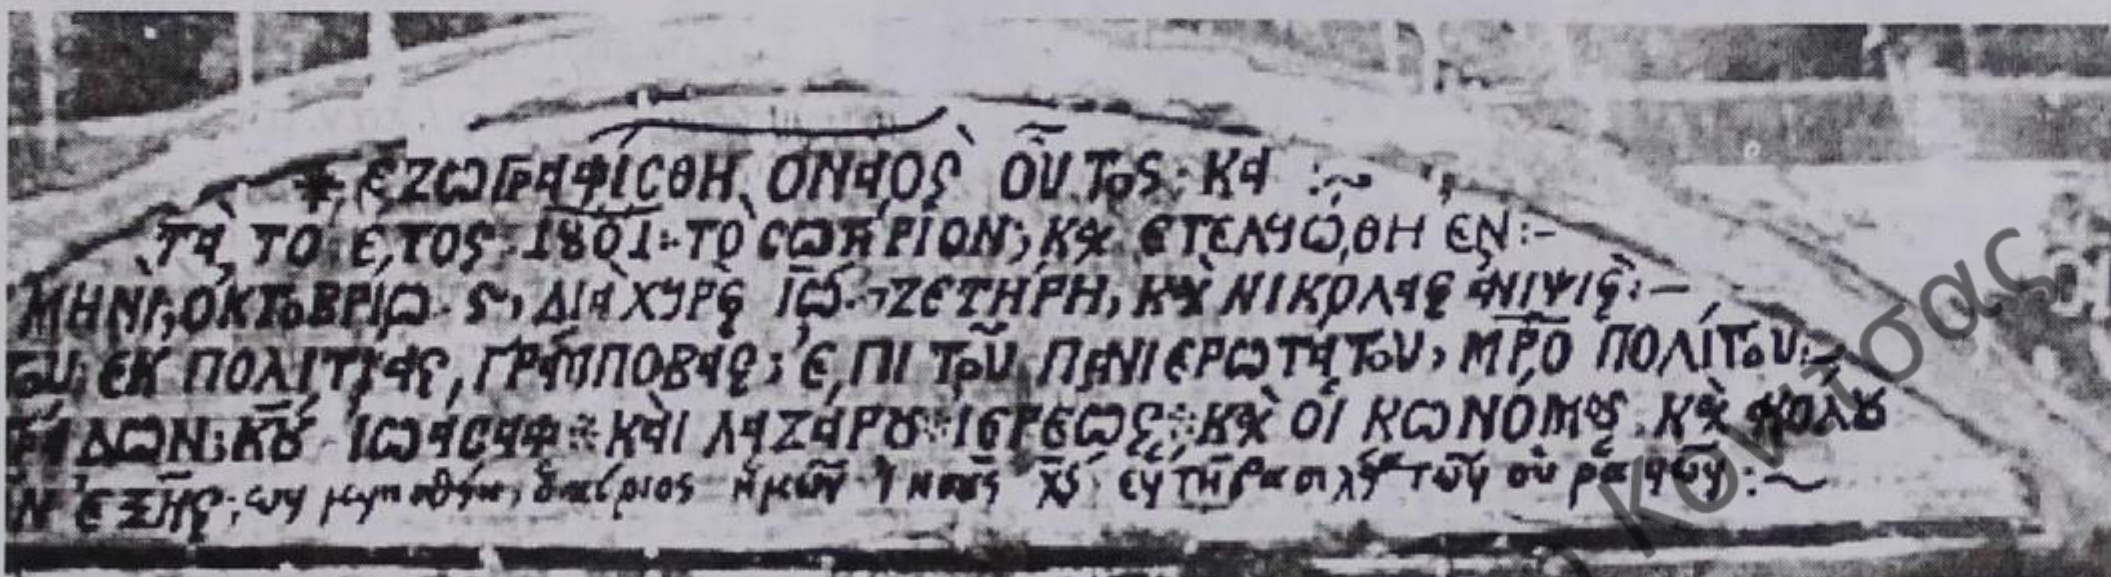 ✳ ΕΖΩΓΡΑΦΙΣΘΗ Ο ΝΑΟΣ ΟΥΤΟΣ· ΚΑ :~
ΤΑ ΤΟ ΕΤΟΣ 1801: ΤΟ ΣΩΤΗΡΙΟΝ; Κ(ΑΙ) ΕΤΕΛΥΩΘΗ ΕΝ:-
ΜΗΝΙ, ΟΚΤΟΒΡΙΩ ς, ΔΙΑ ΧΥΡΟΣ ΙΩ. ΖΕΤΗΡΗ, ΚΑΙ ΝΙΚΟΛΑΣ ΑΝΙΨΙΟΣ:-
ΤΟΥ; ΕΚ ΠΟΛΙΤΥΑΣ, ΓΡΑΜΠΟΒΑΣ; ΕΠΙ ΤΟΥ ΠΑΝΙΕΡΩΤΑΤΟΥ, ΜΡΟ ΠΟΛΙΤΟΥ:-
ΔΩΝ; ΚΟΥ ΙΩΑΣΑΦ: ΚΑΙ ΛΑΖΑΡΟΥ ΙΕΡΕΩΣ: ΚΑΙ ΟΙ ΚΩΝΟΜΟΣ ΚΑΙ
Ν ΕΞΗΣ; ων μνησθήη, ὁ κύριος ἡμῶν Ἰησοῦς Χς ἐν τῇ βασιλεία τῶν οὐρανῶν:~
Κόνιτσας